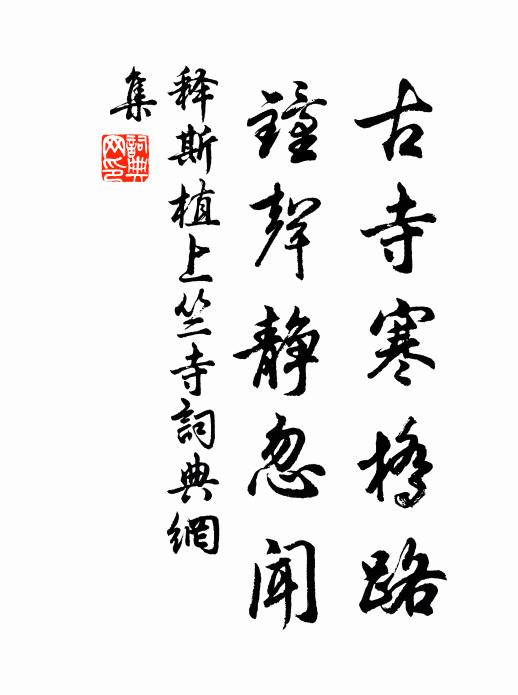 古寺寒橋路
鐘聲靜忽聞
释斯植上竺寺詞典網
集
詞典网印